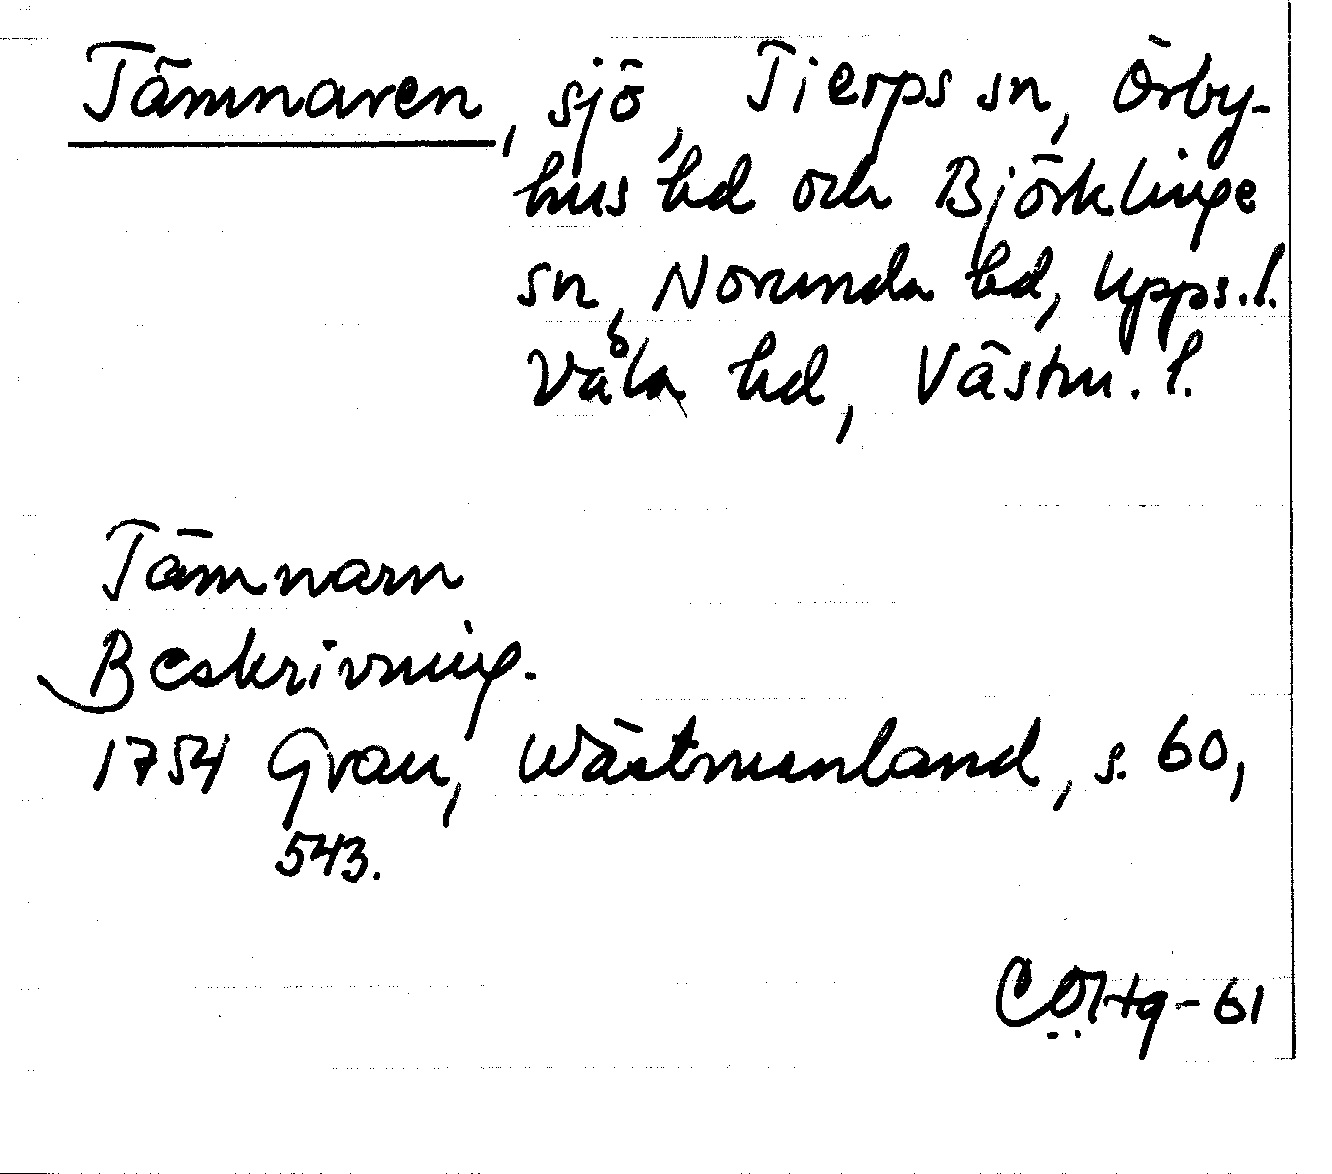 Tämnaren, sjö, Tierps sn, Örby-
hus hd och Björklinge
sn, Norunda hd, Upps. l.
Våla hd, Västm. l.
Tämnarn
Beskrivning.
1754 Grau, Wästmanland, s. 60,
543.
- 61